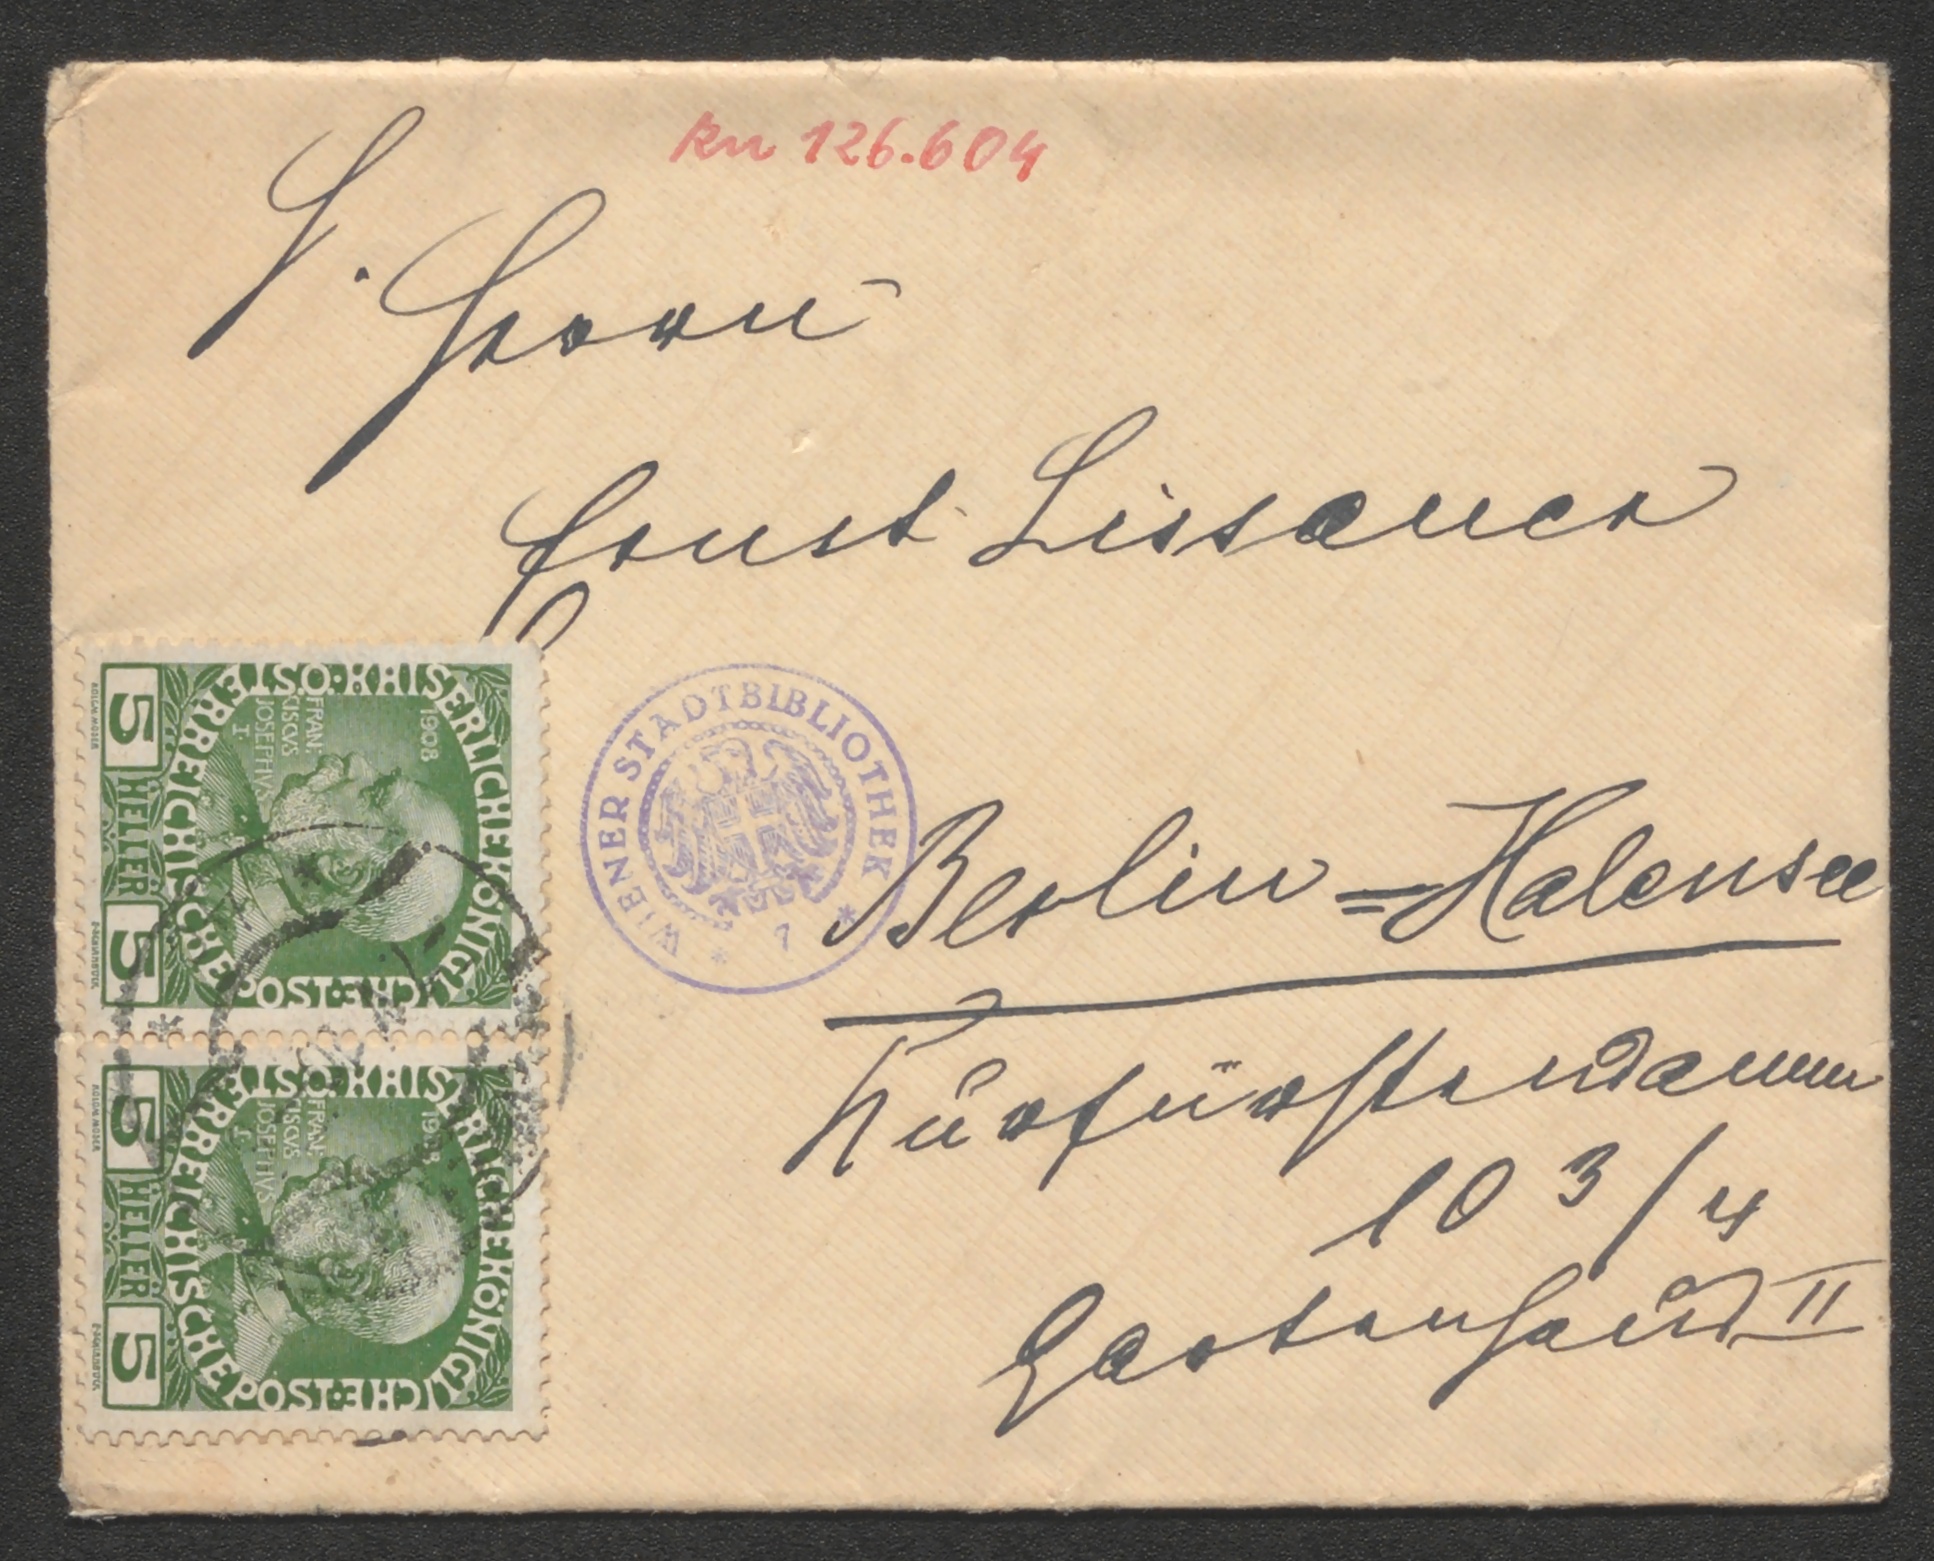 kn 126.604
H. Herrn
Ernst Lissauer
WIENER STADTBIBLIOTHEK
* 7 *
Berlin=Halensee
Kurfürstendamm
103/4
Gartenhaus II
KAISERLICHE KÖNIGLICHE ÖSTERREICHISCHE POST
1908
FRAN:
CISCVS
JOSEPHVS
I.
5 HELLER 5
KAISERLICHE KÖNIGLICHE ÖSTERREICHISCHE POST
1908
FRAN:
CISCVS
JOSEPHVS
I.
5 HELLER 5